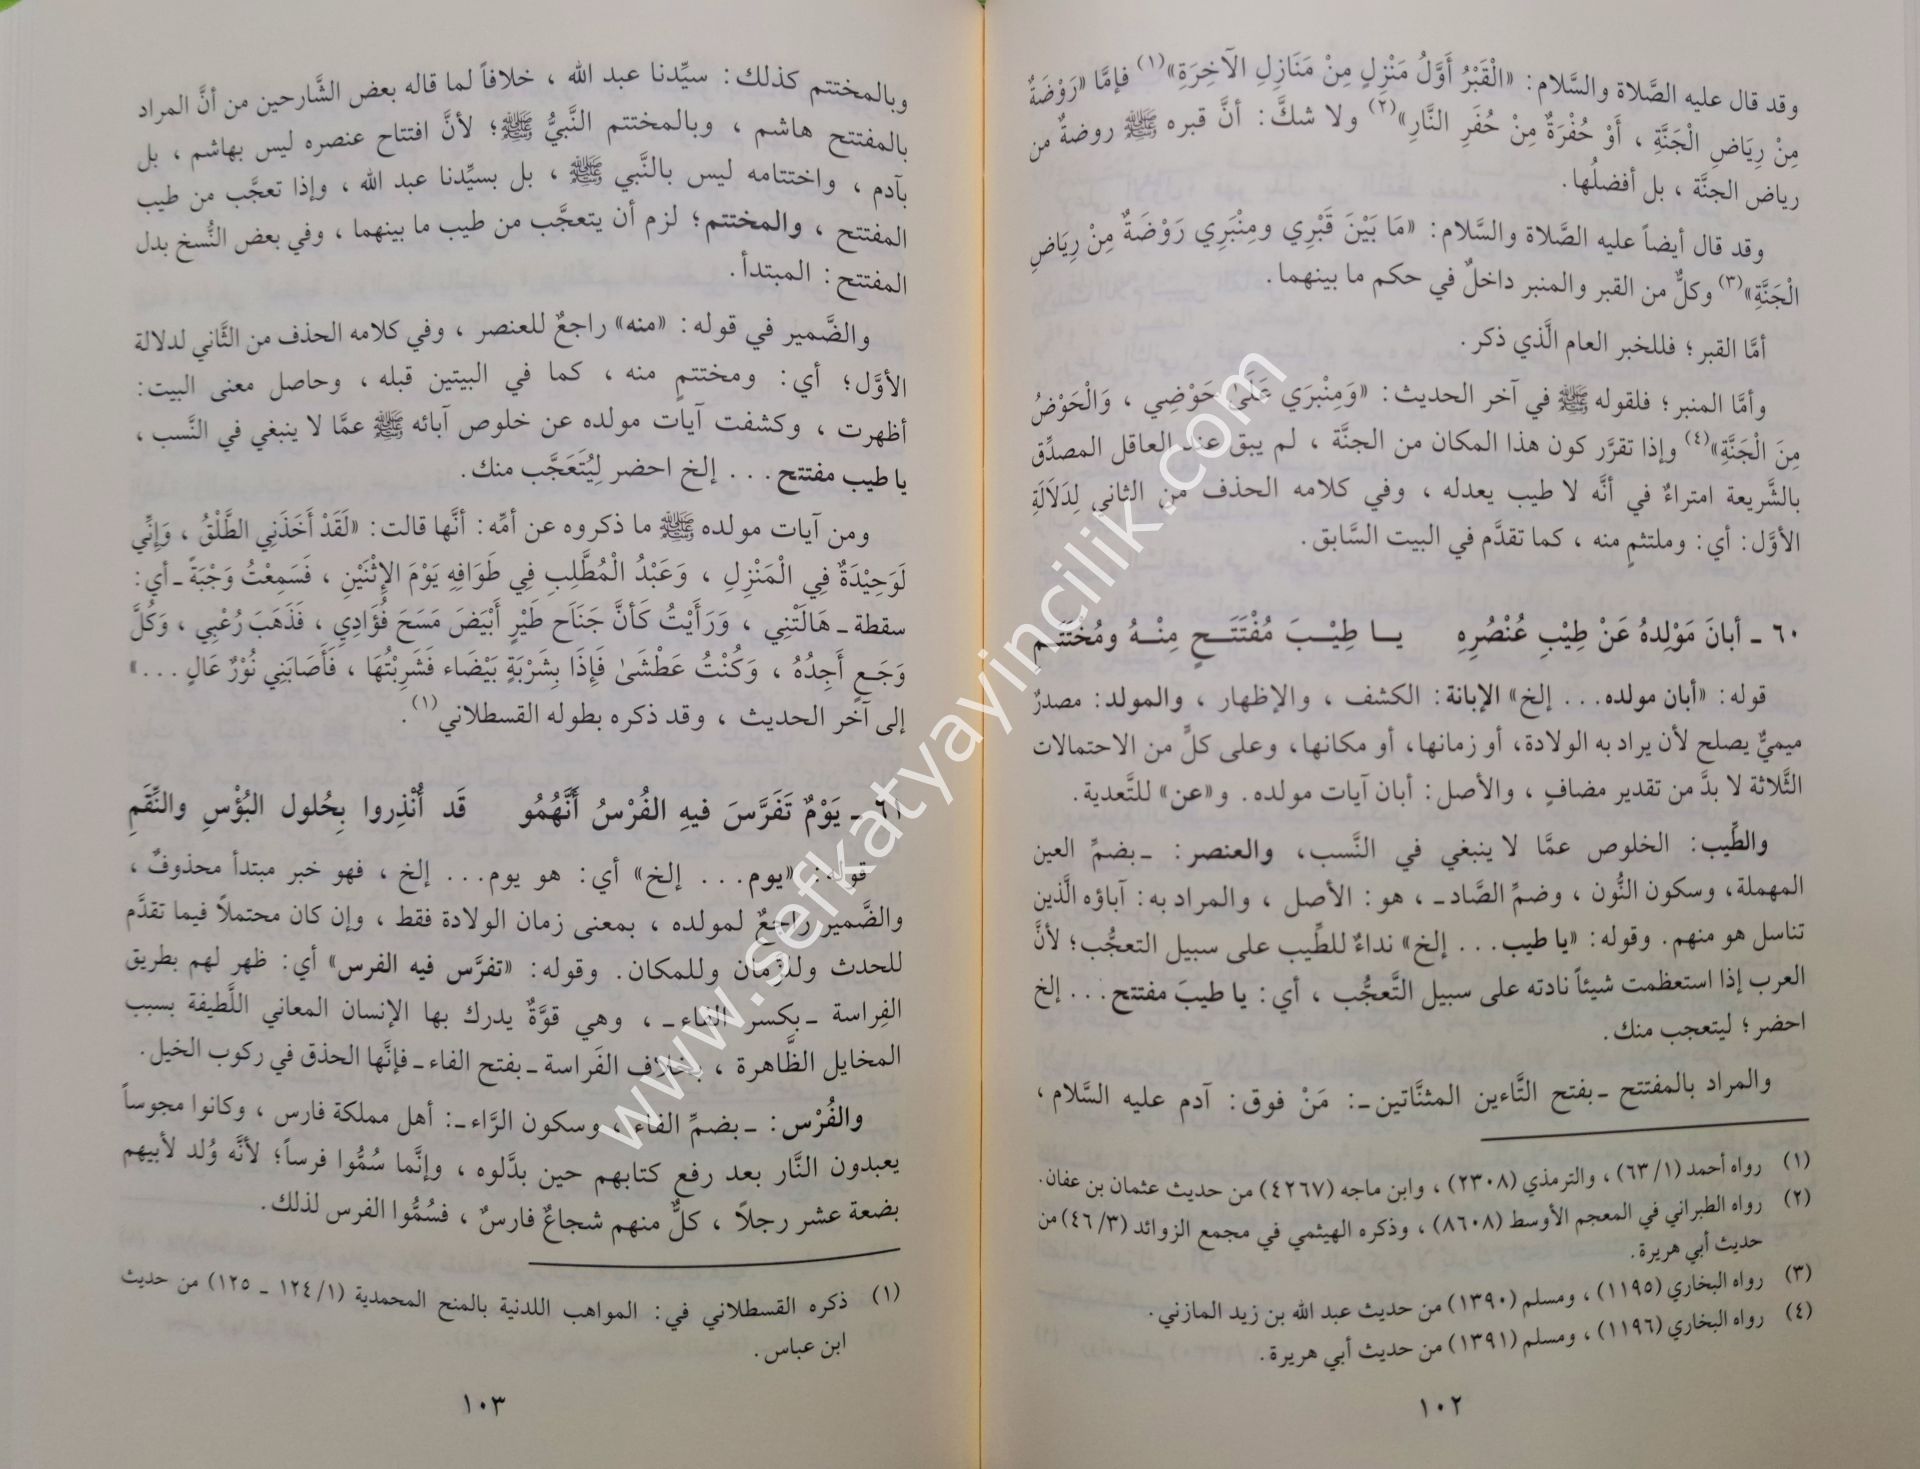 وقد قال عليه الصَّلاة والسَّلام: «الْقَبْرُ أَوَّلُ مَنْزِلٍ مِنْ مَنَازِلِ الآخِرَةِ»(١) فإمَّا «رَوْضَةٌ
مِنْ رِيَاضِ الْجَنَّةِ ، أَوْ حُفْرَةٌ مِنْ حُفَرِ النَّارِ»(٢) ولا شكَّ: أنَّ قبره ﷺ روضةٌ من
رياض الجنَّة ، بل أفضلُها.
وقد قال أيضاً عليه الصَّلاة والسَّلام: «مَا بَيْنَ قَبْرِي ومِنْبَرِي رَوْضَةٌ مِنْ رِيَاضِ
الْجَنَّةِ»(٣) وكلٌّ من القبر والمنبر داخلٌ في حكم ما بينهما.
أمَّا القبر ؛ فللخبر العام الَّذي ذكر.
وأمَّا المنبر ؛ فلقوله ﷺ في آخر الحديث: «وَمِنْبَرِي عَلَىٰ حَوْضِي ، وَالْحَوْضُ
مِنَ الْجَنَّةِ»(٤) وإذا تقرَّر كون هذا المكان من الجنَّة ، لم يبق عند العاقل المصدِّق
بالشَّريعة امتراءٌ في أنَّه لا طيب يعدله ، وفي كلامه الحذف من الثاني لِدَلَالَةِ
الأوَّل: أي: وملتثمٍ منه ، كما تقدَّم في البيت السَّابق.
٦٠ ـ أبانَ مَوْلِدهُ عَنْ طِيْبِ عُنْصُرِهِ يـا طِيْـبَ مُفْتَتَـحٍ مِنْـهُ ومُخْتَتَـمِ
قوله: «أبان مولده... إلخ» الإبانة: الكشف ، والإظهار ، والمولد: مصدرٌ
ميميٌّ يصلح لأن يراد به الولادة، أو زمانها، أو مكانها، وعلى كلٍّ من الاحتمالات
الثَّلاثة لا بدَّ من تقدير مضافٍ ، والأصل: أبان آيات مولده. و«عن» للتَّعدية.
والطِّيب: الخلوص عمَّا لا ينبغي في النَّسب، والعنصر: ـ بضمِّ العين
المهملة، وسكون النُّون ، وضمِّ الصَّاد ـ ، هو: الأصل ، والمراد به: آباؤه الَّذين
تناسل هو منهم. وقوله: «يا طيب... إلخ» نداءٌ للطِّيب على سبيل التعجُّب؛ لأنَّ
العرب إذا استعظمت شيئاً نادته على سبيل التَّعجُّب ، أي: يا طيبَ مفتتح... إلخ
احضر ؛ ليتعجب منك.
والمراد بالمفتتح ـ بفتح التَّاءين المثنَّاتين ـ: مَنْ فوق: آدم عليه السَّلام ،
(١) رواه أحمد (٦٣/١) ، والترمذي (٢٣٠٨) ، وابن ماجه (٤٢٦٧) من حديث عثمان بن عفان.
(٢) رواه الطبراني في المعجم الأوسط (٨٦٠٨) ، وذكره الهيثمي في مجمع الزوائد (٤٦/٣) من
حديث أبي هريرة.
(٣) رواه البخاري (١١٩٥) ، ومسلم (١٣٩٠) من حديث عبد الله بن زيد المازني.
(٤) رواه البخاري (١١٩٦) ، ومسلم (١٣٩١) من حديث أبي هريرة.
١٠٢
وبالمختتم كذلك: سيِّدنا عبد الله ، خلافاً لما قاله بعض الشَّارحين من أنَّ المراد
بالمفتتح هاشم ، وبالمختتم النَّبيُّ ﷺ؛ لأنَّ افتتاح عنصره ليس بهاشم ، بل
بآدم ، واختتامه ليس بالنَّبي ﷺ ، بل بسيِّدنا عبد الله ، وإذا تعجَّب من طيب
المفتتح ، والمختتم؛ لزم أن يتعجَّب من طيب ما بينهما ، وفي بعض النُّسخ بدل
المفتتح: المبتدأ.
والضَّمير في قوله: «منه» راجعٌ للعنصر ، وفي كلامه الحذف من الثَّاني لدلالة
الأوَّل؛ أي: ومختتمٍ منه ، كما في البيتين قبله ، وحاصل معنى البيت:
أظهرت ، وكشفت آيات مولده عن خلوص آبائه ﷺ عمَّا لا ينبغي في النَّسب ،
يا طيب مفتتح... إلخ احضر لِيُتَعَجَّب منك.
ومن آيات مولده ﷺ ما ذكروه عن أمِّه: أنَّها قالت: «لَقَدْ أَخَذَنِي الطَّلْقُ ، وَإِنِّي
لَوَحِيْدَةٌ فِي الْمَنْزِلِ ، وَعَبْدُ الْمُطَّلِبِ فِي طَوَافِهِ يَوْمَ الإِثْنَيْنِ ، فَسَمِعْتُ وَجْبَةً ـ أي:
سقطة ـ هَالَتْنِي ، وَرَأَيْتُ كَأَنَّ جَنَاحَ طَيْرٍ أَبْيَضَ مَسَحَ فُؤَادِي ، فَذَهَبَ رُعْبِي ، وَكُلُّ
وَجَـعٍ أَجِدُهُ ، وَكُنْتُ عَطْشَىٰ فَإِذَا بِشَرْبَةٍ بَيْضَاء فَشَرِبْتُهَا ، فَأَصَابَنِي نُوْرٌ عَالٍ...»
إلى آخر الحديث ، وقد ذكره بطوله القسطلاني(١).
٦١ ـ يَوْمٌ تَفَرَّسَ فيهِ الفُرْسُ أنَّهُمُو قَد أُنْذِروا بِحُلول البُؤْسِ والنِّقَمِ
قوله: «يوم... إلخ» أي: هو يوم... إلخ ، فهو خبر مبتدأ محذوفٌ ،
والضَّمير راجعٌ لمولده ، بمعنى زمان الولادة فقط ، وإن كان محتملاً فيما تقدَّم
للحدث وللزَّمان وللمكان. وقوله: «تفرَّس فيه الفرس» أي: ظهر لهم بطريق
الفِراسة ـ بكسر الفاء ـ ، وهي قوَّةٌ يدرك بها الإنسان المعاني اللَّطيفة بسبب
المخايل الظَّاهرة ، بخلاف الفَراسة ـ بفتح الفاء ـ فإنَّها الحذق في ركوب الخيل.
والفُرْس: ـ بضمِّ الفاء ، وسكون الرَّاء ـ: أهل مملكة فارس ، وكانوا مجوساً
يعبدون النَّار بعد رفع كتابهم حين بدَّلوه ، وإنَّما سُمُّوا فرساً؛ لأنَّه وُلد لأبيهم
بضعة عشر رجلاً ، كلٌّ منهم شجاعٌ فارسٌ ، فسُمُّوا الفرس لذلك.
(١) ذكره القسطلاني في: المواهب اللدنية بالمنح المحمدية (١٢٤/١ ـ ١٢٥) من حديث
ابن عباس.
١٠٣
www.sefkatyayincilik.com